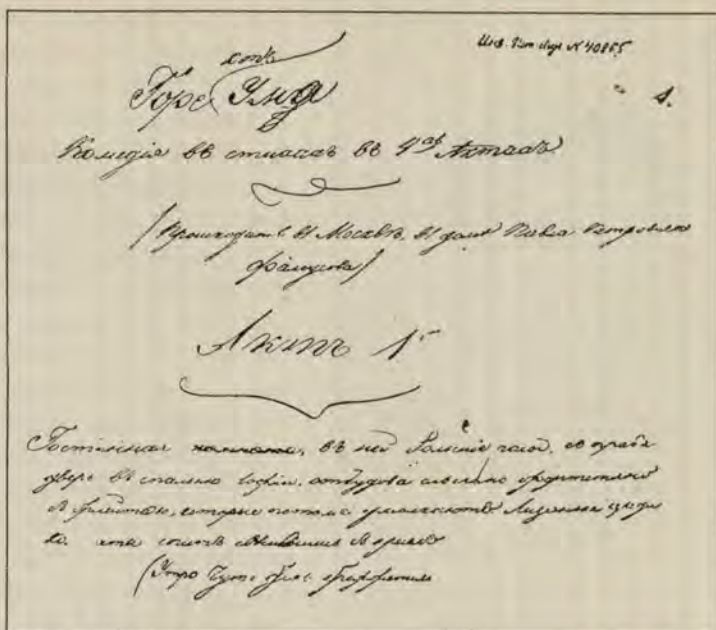 N 40865
1.
отъ
Горе Ума
Комедія въ стихахъ въ 4хъ Актахъ
/Происходитъ въ Москвѣ, въ домѣ Павла Петровича
Фамусова/
Актъ 1й
Гостинная комната, въ ней большіе часы, съ права
дверь въ спальню Софіи, откудова слышно фортепіяно
съ флейтою, которые потомъ умолкаютъ Лизанька
спитъ свѣсившись съ креселъ
(Утро чуть день брежжится